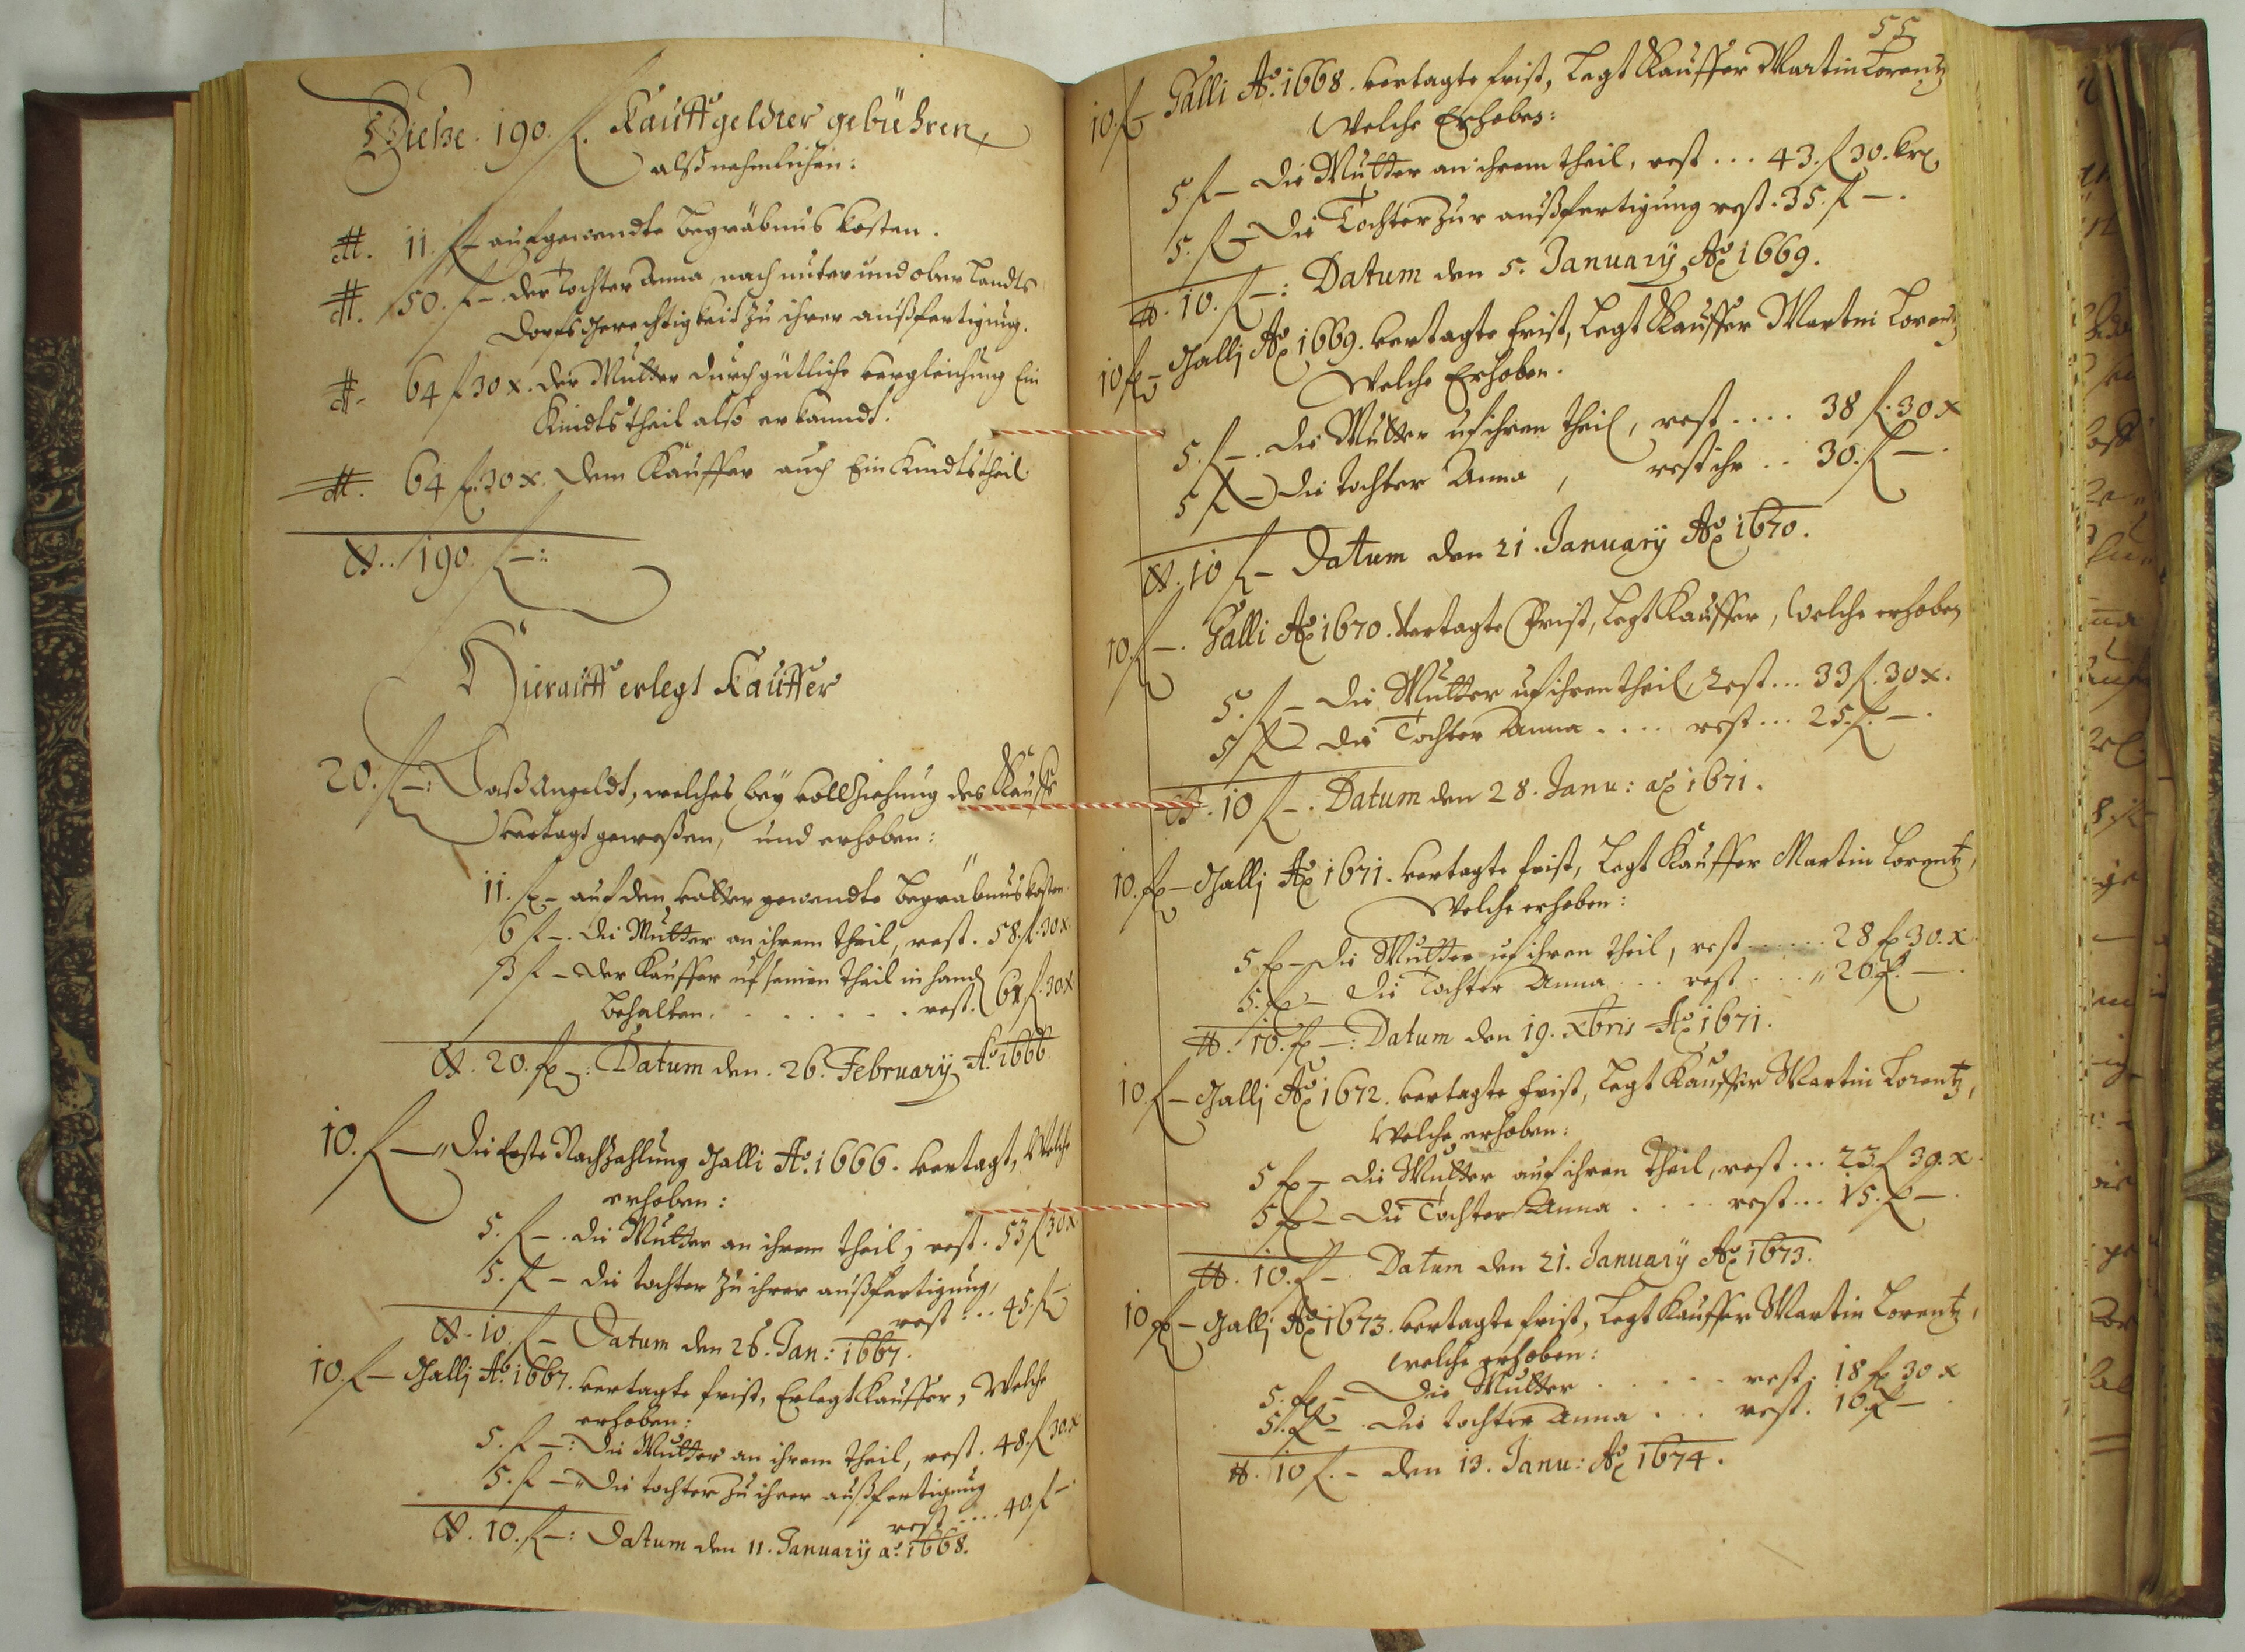 Dieße 190. fl. Kauffgelder gebühren,
alß nehmlichen:
11. fl — aufgewendte Begräbnus kosten.
50. fl — der Tochter Anna, nach unter und ober Landts
Dorfs Gerechtigkeit zu ihrer außfertigung.
64 fl 30 x. der Mutter durch gütliche vergleichung Ein
Kindts theil also erkanndt.
64 fl 30 x. dem Kauffer auch Ein Kindts theil.
190. fl —:
Hierauff erlegt Kauffer
20. fl —: Daß Angeldt, welches bey vollziehung des Kauffs
vertagt geweßen, und erhoben:
11. fl — auf den Vatter gewendte Begräbnus kosten.
6 fl —. die Mutter an ihrem theil, rest. 58. fl. 30 x.
3 fl — der Kauffer uf seinen theil in hand
Behalten. . . . . . . rest. 61 fl. 30 x
20. fl —: Datum den. 26. February Ao. 1666.
10. fl — Die Erste Nachzahlung Galli Ao. 1666. vertagt, Welche
erhoben:
5. fl —. die Mutter an ihrem theil, rest. 53 fl 30 x
5. fl — die tochter zu ihrer außfertigung,
rest . . . 45. fl —
10. fl — Datum den 26. Jan: 1667.
10. fl — Gallj Ao. 1667. vertagte frist, Erlegt Kauffer, Welche
erhoben:
5. fl —: Die Mutter an ihrem theil, rest. 48. fl 30. x
5. fl — Die tochter zu ihrer außfertigung
rest . . . . 40. fl —
10. fl —: Datum den 11. January ao. 1668.
55
10. fl — Galli Ao. 1668. vertagte frist, Legt Kauffer Martin Lorentz
Welche Erhoben:
5 fl — die Mutter an ihrem theil, rest . . . 43. fl 30. krx.
5. fl — Die Tochter zur außfertigung rest. 35. fl —.
10. fl —: Datum den 5. January Ao 1669.
10 fl — Gallj Ao 1669. vertagte frist, Legt Kauffer Martin Lorentz
Welche Erhoben.
5. fl —. die Mutter uf ihren theil, rest . . . . 38 fl. 30 x
5 fl — die tochter Anna, rest ihr . . 30. fl —.
10 fl — Datum den 21. January Ao 1670.
10. fl —. Galli Ao 1670. Vertagte Frist, Legt Kauffer, Welche erhoben
5. fl — die Mutter uf ihren theil, Rest . . . 33 fl. 30 x.
5 fl — die Tochter Anna . . . . rest . . . 25. fl. —.
10 fl —. Datum den 28. Janu: ao 1671.
10. fl — Gallj Ao 1671. vertagte frist, Legt Kauffer Martin Lorentz,
Welche erhoben:
5 fl — die Mutter uf ihren theil, rest . . . . . 28 fl 30. x.
5. fl — die Tochter Anna . . . rest . . . 20 fl. —.
10. fl —: Datum den 19. xbris Ao. 1671.
10. fl — Gallj Ao 1672. vertagte frist, Legt Kauffer Martin Lorentz,
Welche erhoben:
5 fl — die Mutter auf ihren theil, rest . . . 23. fl 30. x.
5 fl — die Tochter Anna . . . . rest . . . 15. fl —.
10. fl — Datum den 21. January Ao 1673.
10 fl — Gallj Ao 1673. vertagte frist, Legt Kauffer Martin Lorentz,
welche erhoben:
5. fl — Die Mutter . . . . . rest. 18 fl 30 x
5. fl — . die tochter Anna . . . rest. 10 fl —
10 fl. — den 13. Janu: Ao 1674.